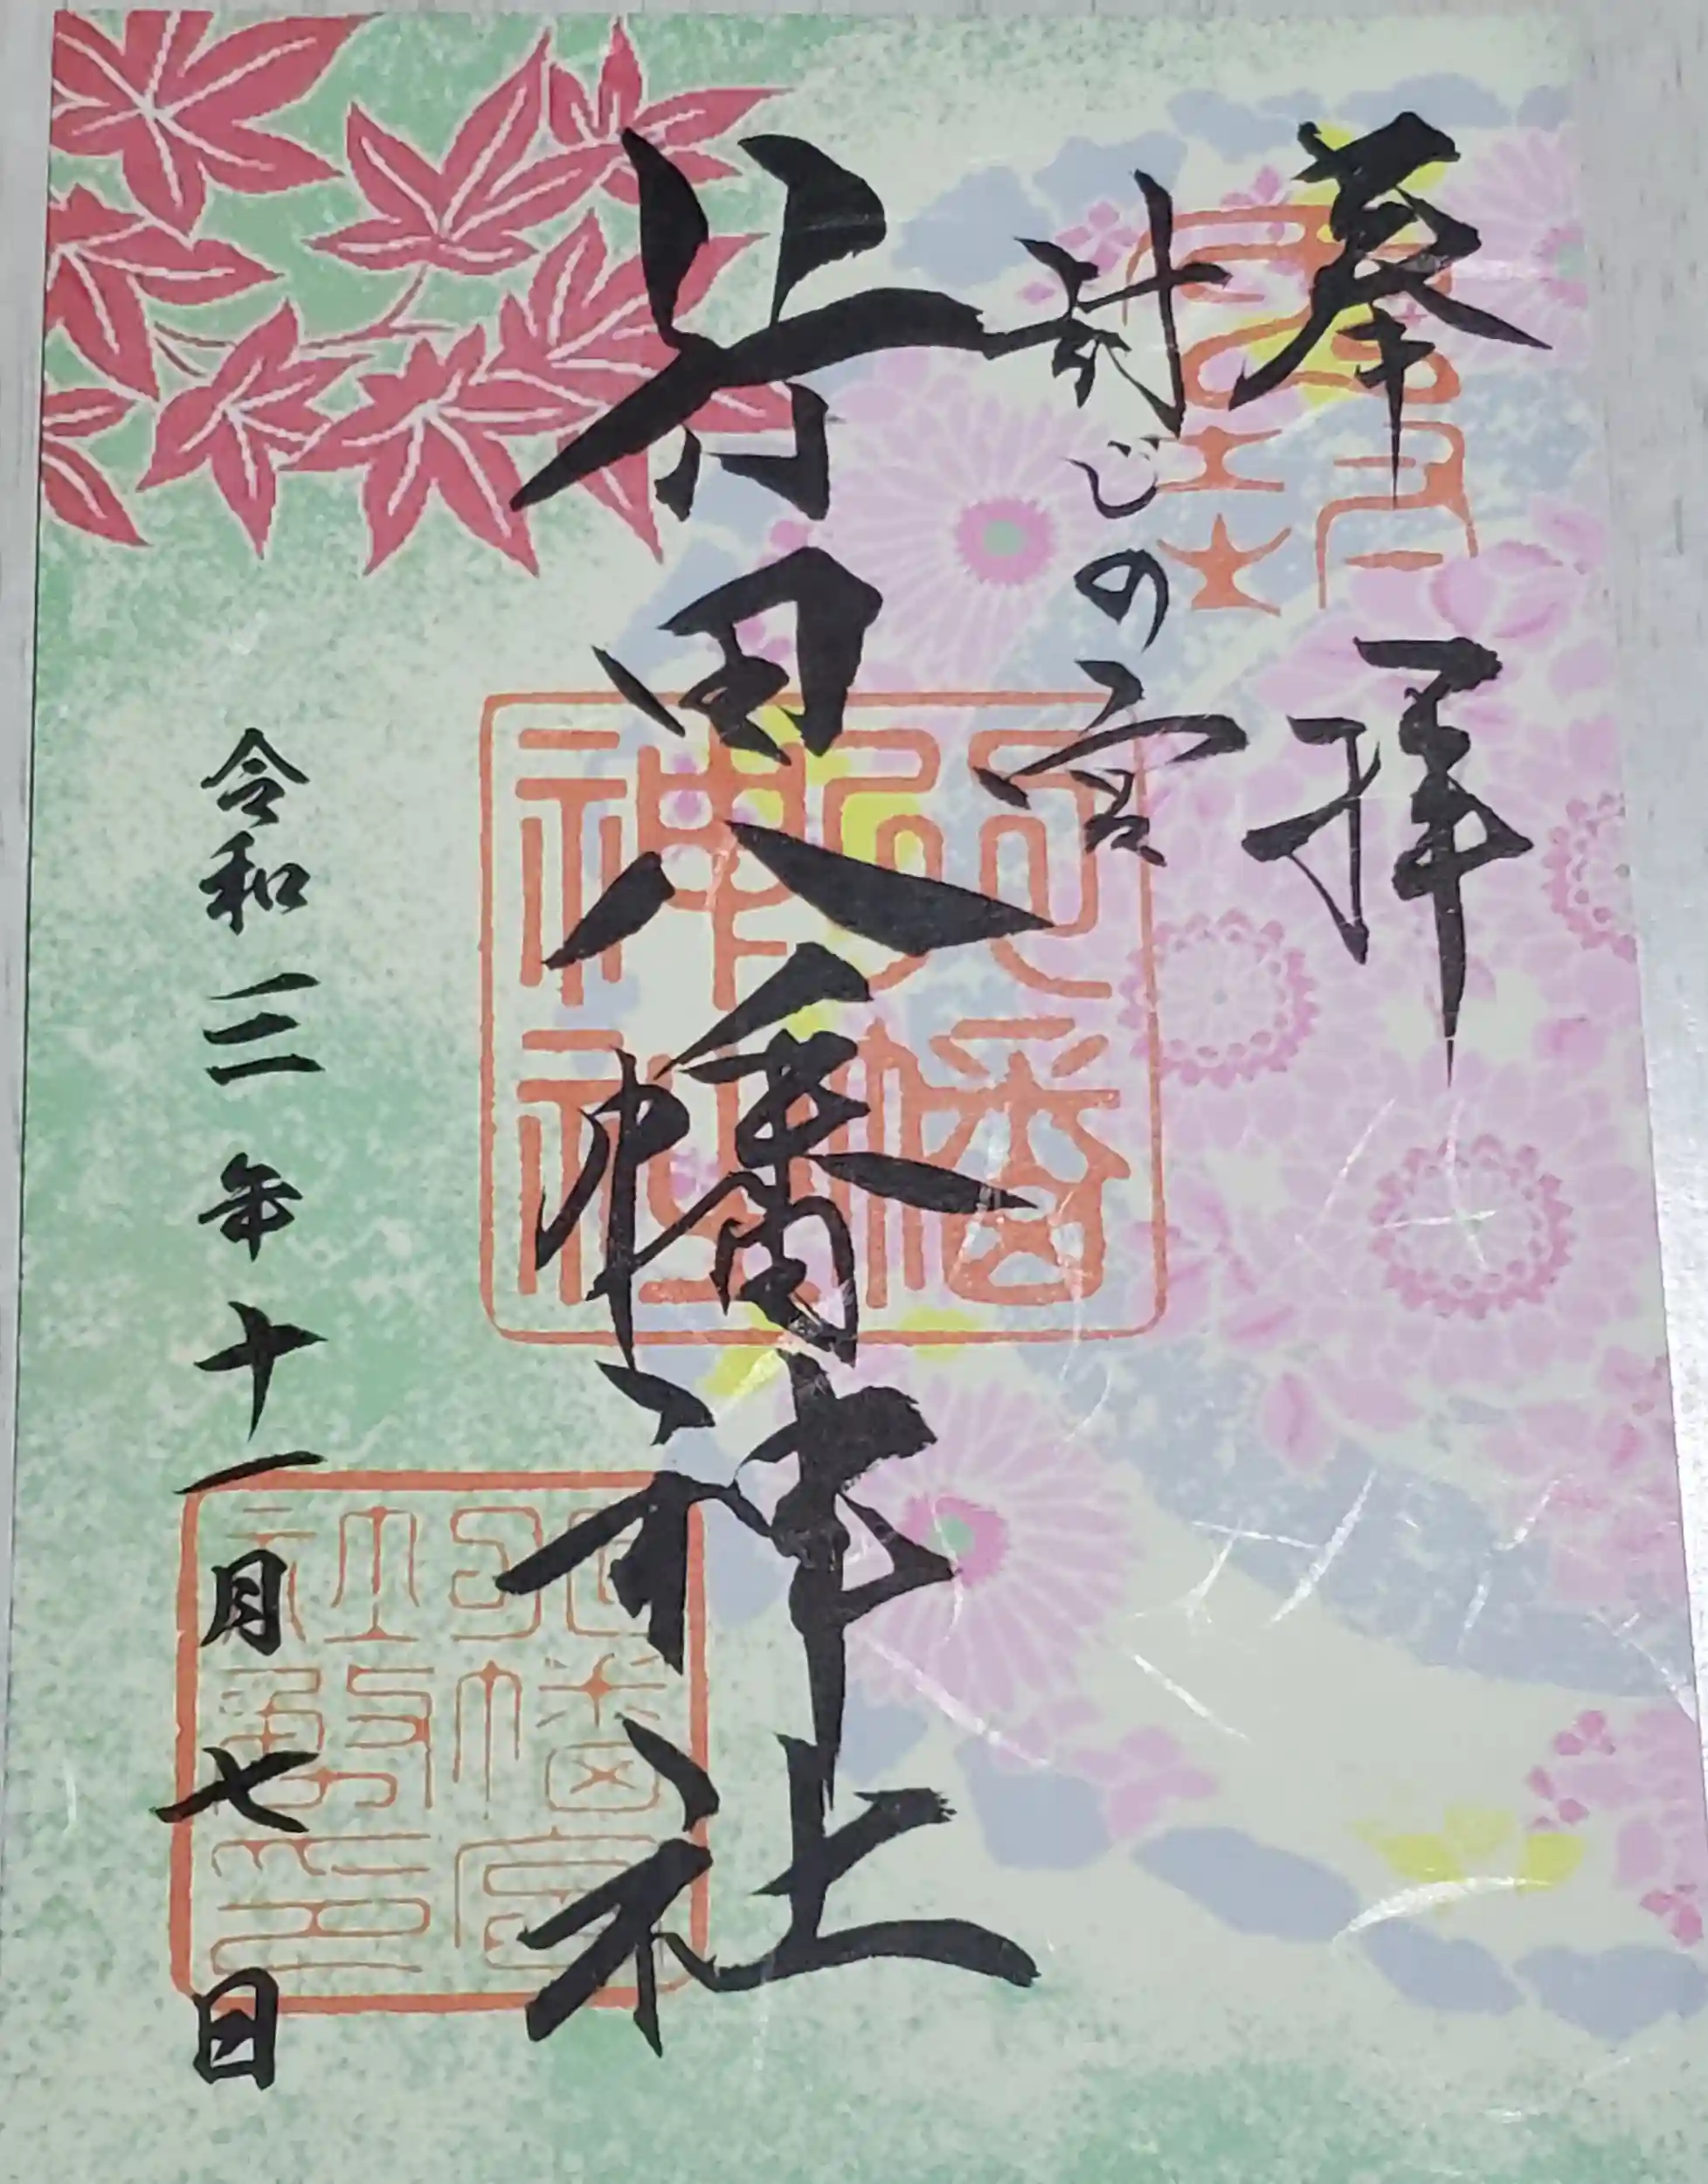 奉拝
封じの宮
八幡神社
令和三年十一月七日
八幡神社